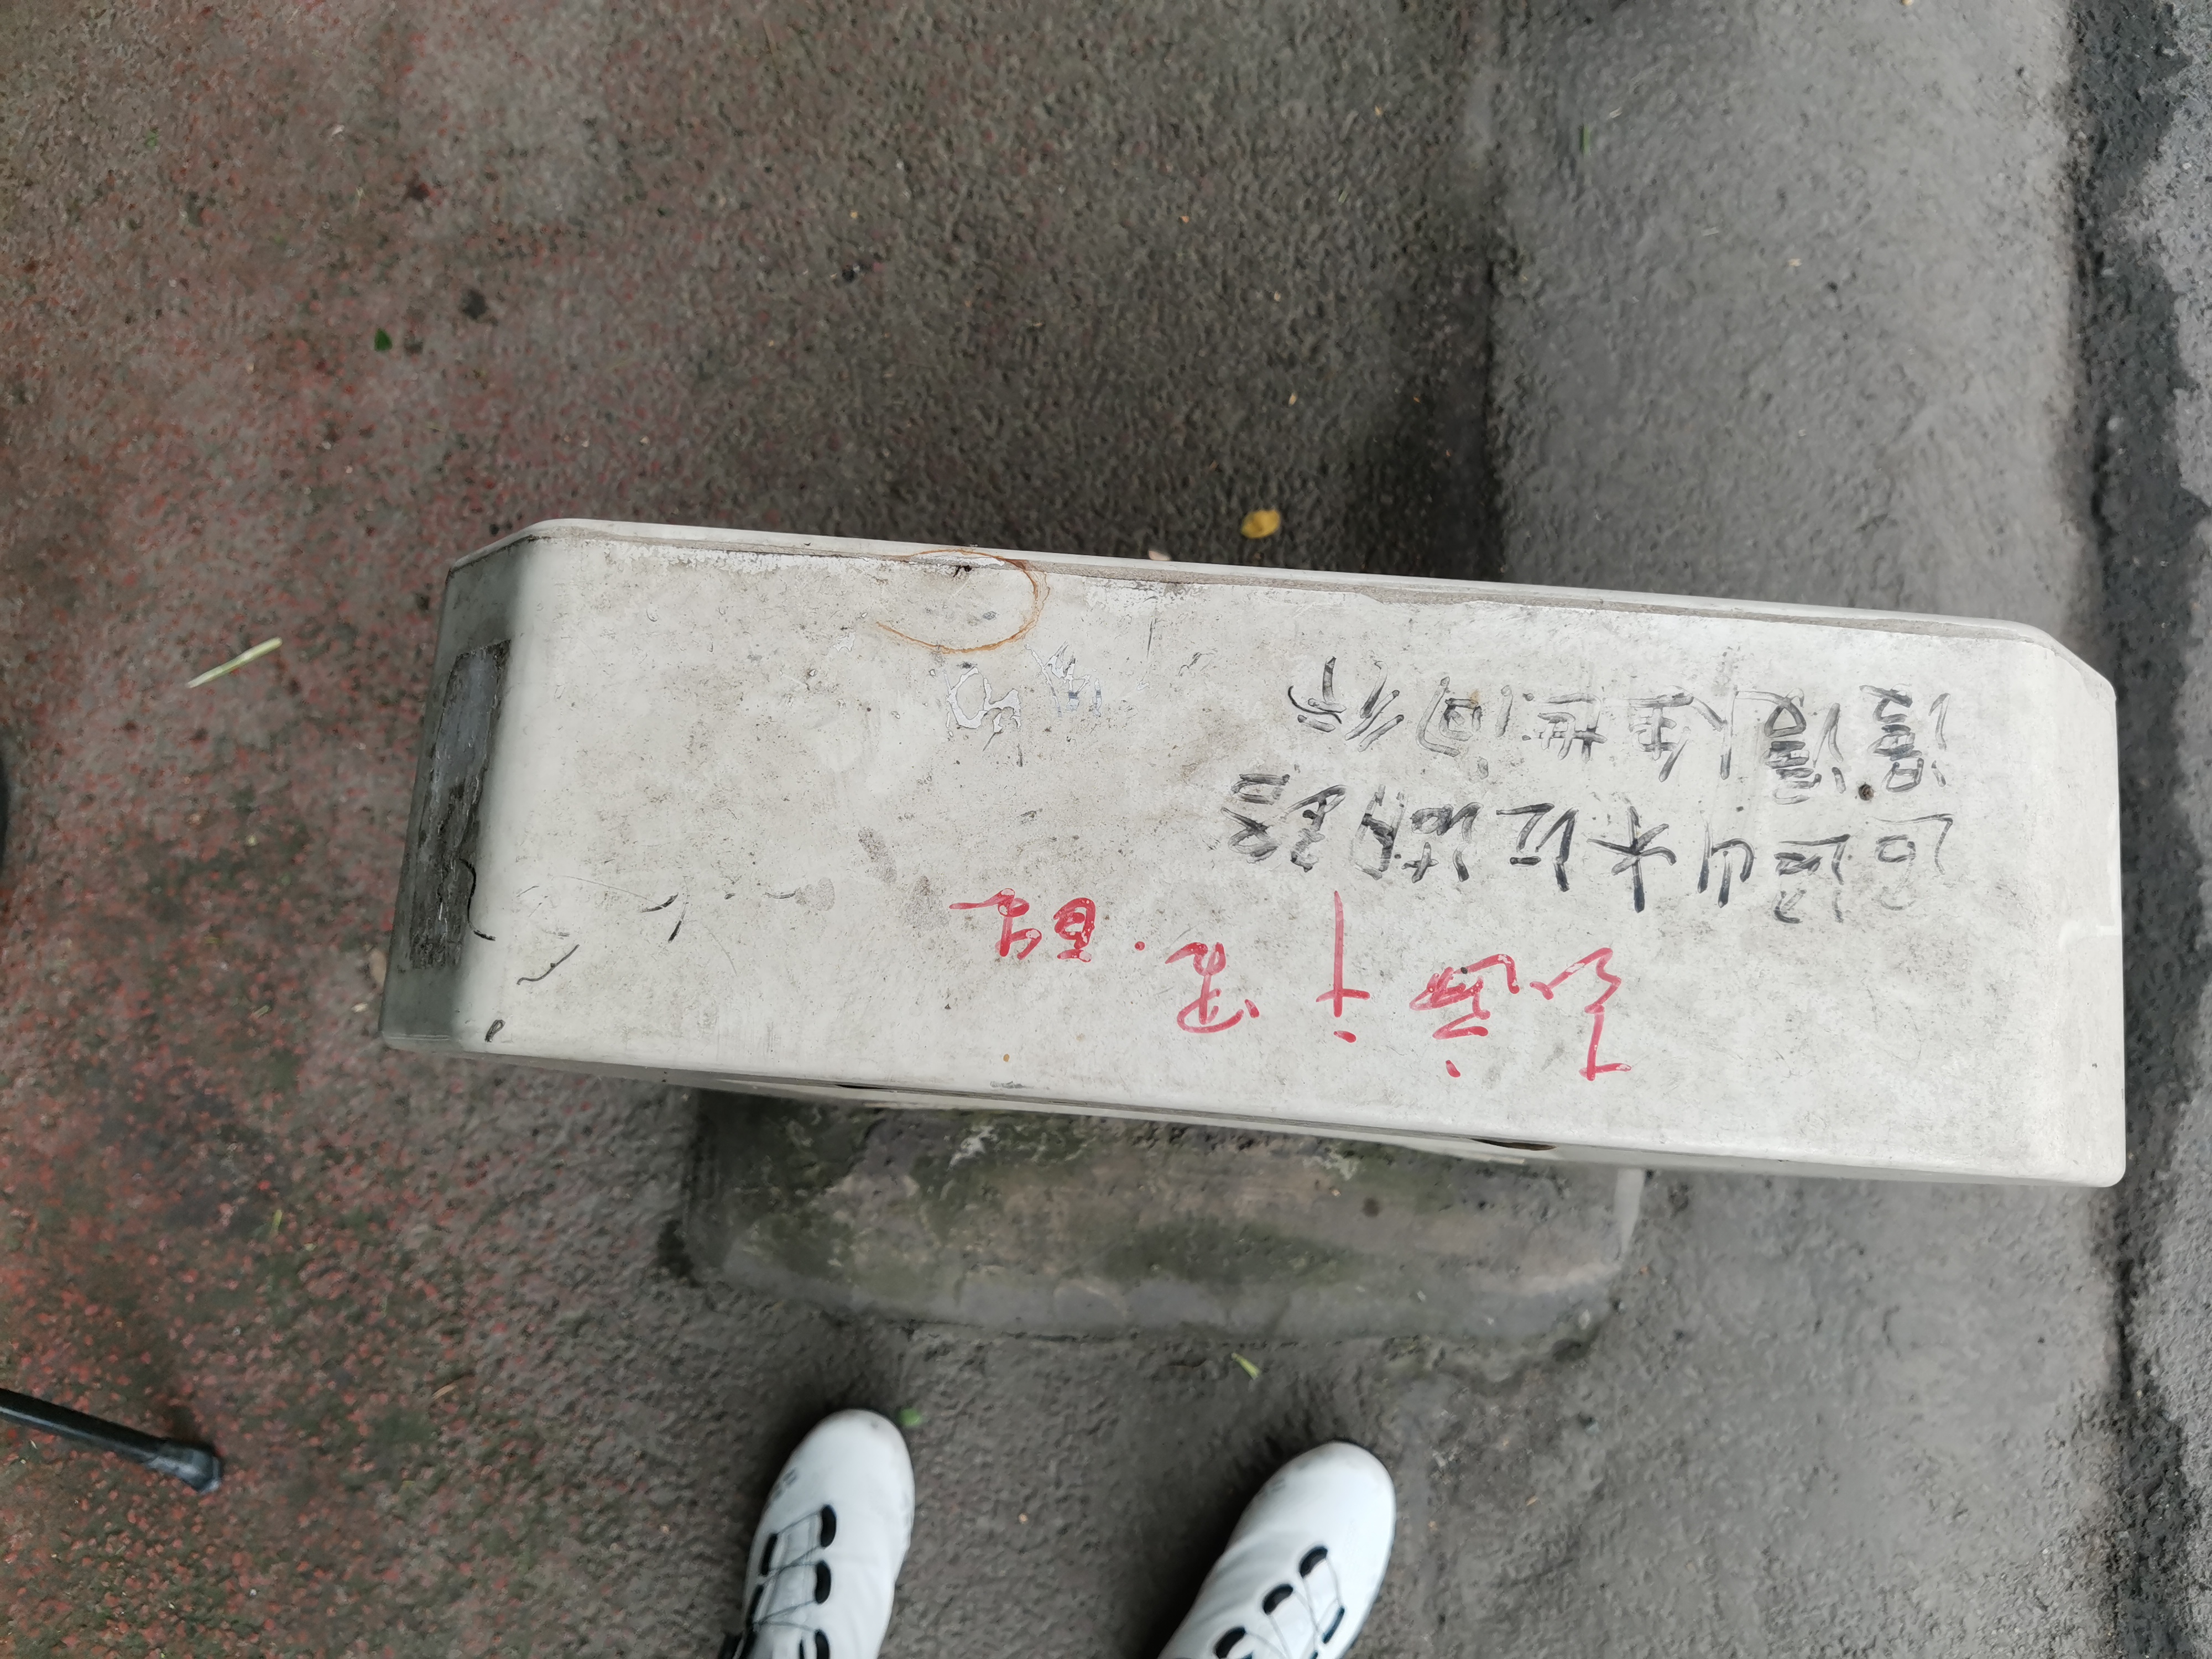 走遍千里.
迢迢山水江湖路
漫漫人生世间行